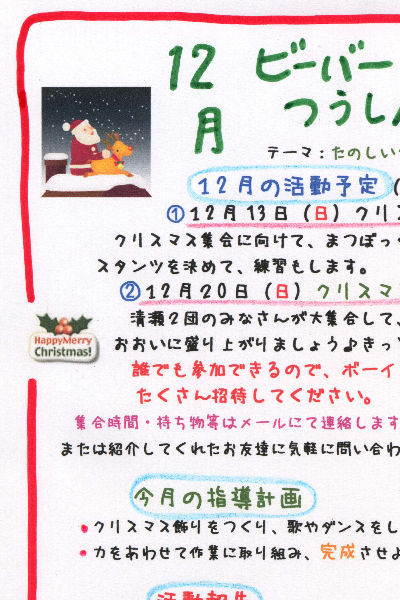 12月
ビーバー
つうしん
テーマ：たのしい
12月の活動予定
① 12月13日（日）クリス
クリスマス集会に向けて、まつぼっ
スタンツを決めて、練習もします。
② 12月20日（日）クリスマ
清瀬2団のみなさんが大集合して、
おおいに盛り上がりましょう♪きっ
誰でも参加できるので、ボーイ
たくさん招待してください。
集合時間・持ち物等はメールにて連絡します
または紹介してくれたお友達に気軽に問い合わ
HappyMerry
Christmas!
今月の指導計画
• クリスマス飾りをつくり、歌やダンスをし
• 力をあわせて作業に取り組み、完成させよ
活動報告